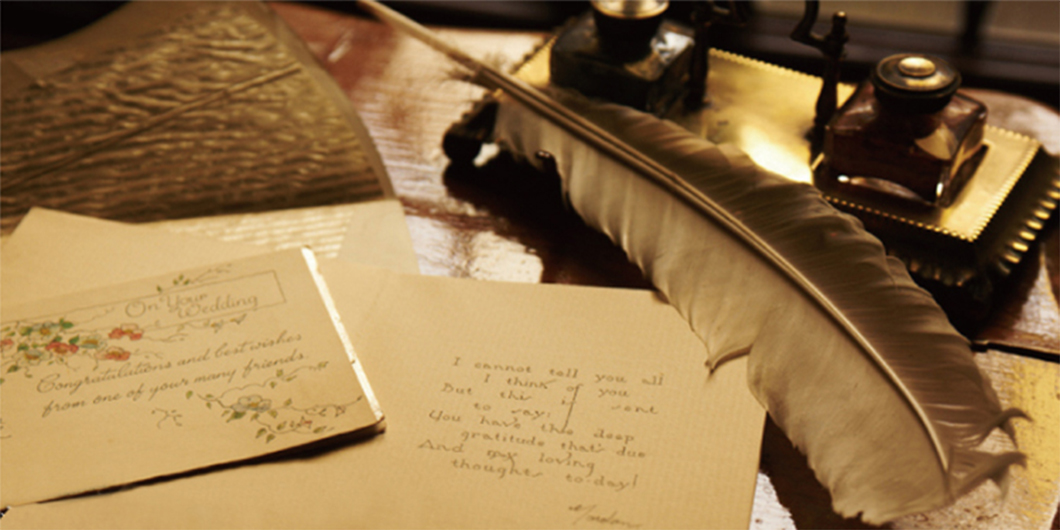 On Your
Wedding
Congratulations and best wishes
from one of your many friends.
I cannot tell you all
I think of you
But this is sent
to say:
You have the deep
gratitude that's due
And my loving
thoughts to-day!